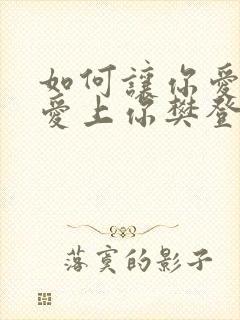 如何讓你愛
愛上你樊登
落寞的影子